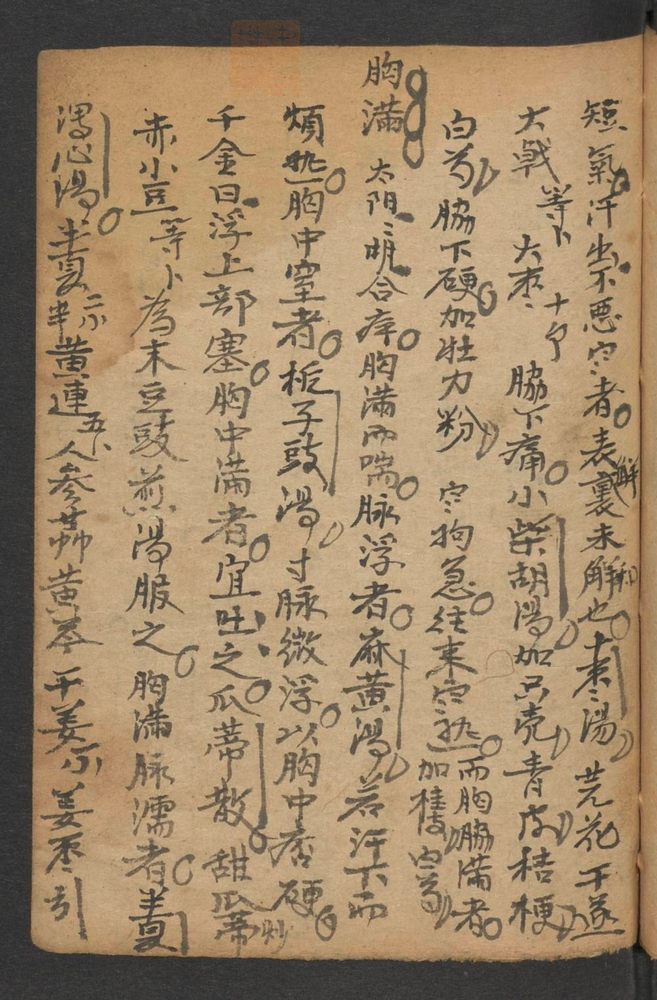 短氣汗出不悪寒者表裏未解也十枣湯 芫花 干遂
大戟等卜 大枣十个 脇下痛小柴胡湯加只壳青皮桔梗
白芍 脇下硬加牡力粉 寒拘急往来寒热而胸脇满者加桂枝白芍
胸满 太阳阳明合病胸满而喘脉浮者麻黄湯 若汗下而
煩热胸中窒者栀子豉湯 寸脉微浮以胸中痞硬
千金曰浮上部塞胸中满者宜吐之瓜蒂散 甜瓜蒂炒
赤小豆等卜 為末豆豉煎湯服之 胸满脉濡者半夏
瀉心湯 半夏 黄連五卜 人参草黄芩干姜 姜枣引